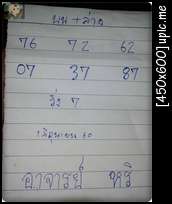 บน + ล่าง
76 72 62
07 37 87
วิ่ง 7
1 มิถุนายน 60
อาจารย์ หริ
[450x600] upic.me